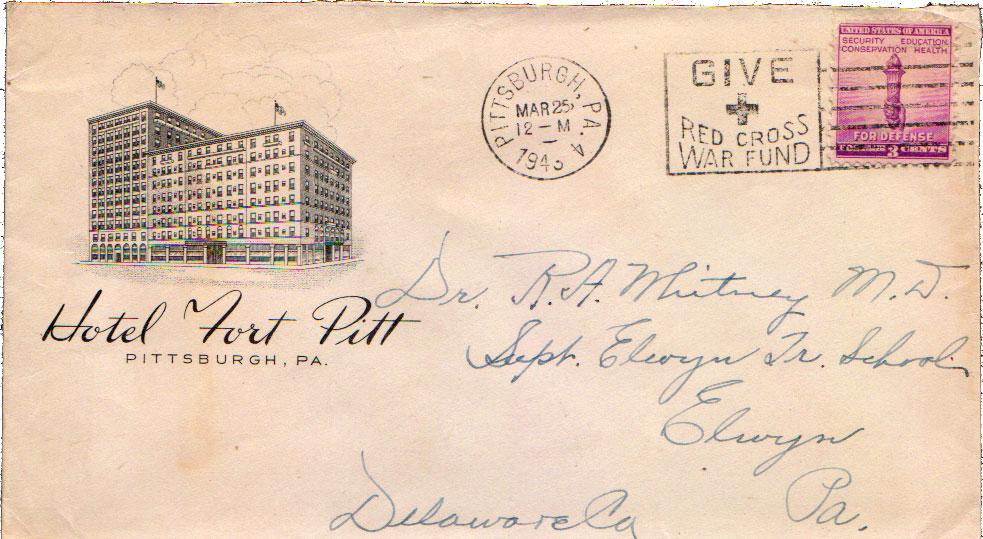 Hotel Fort Pitt
PITTSBURGH, PA.
PITTSBURGH, PA.
MAR 25
12 - M
1943
A
GIVE
RED CROSS
WAR FUND
UNITED STATES OF AMERICA
SECURITY EDUCATION
CONSERVATION HEALTH
FOR DEFENSE
3 CENTS
Dr. R.A. Whitney M.D.
Supt. Elwyn Tr. School
Elwyn
Delaware Co Pa.